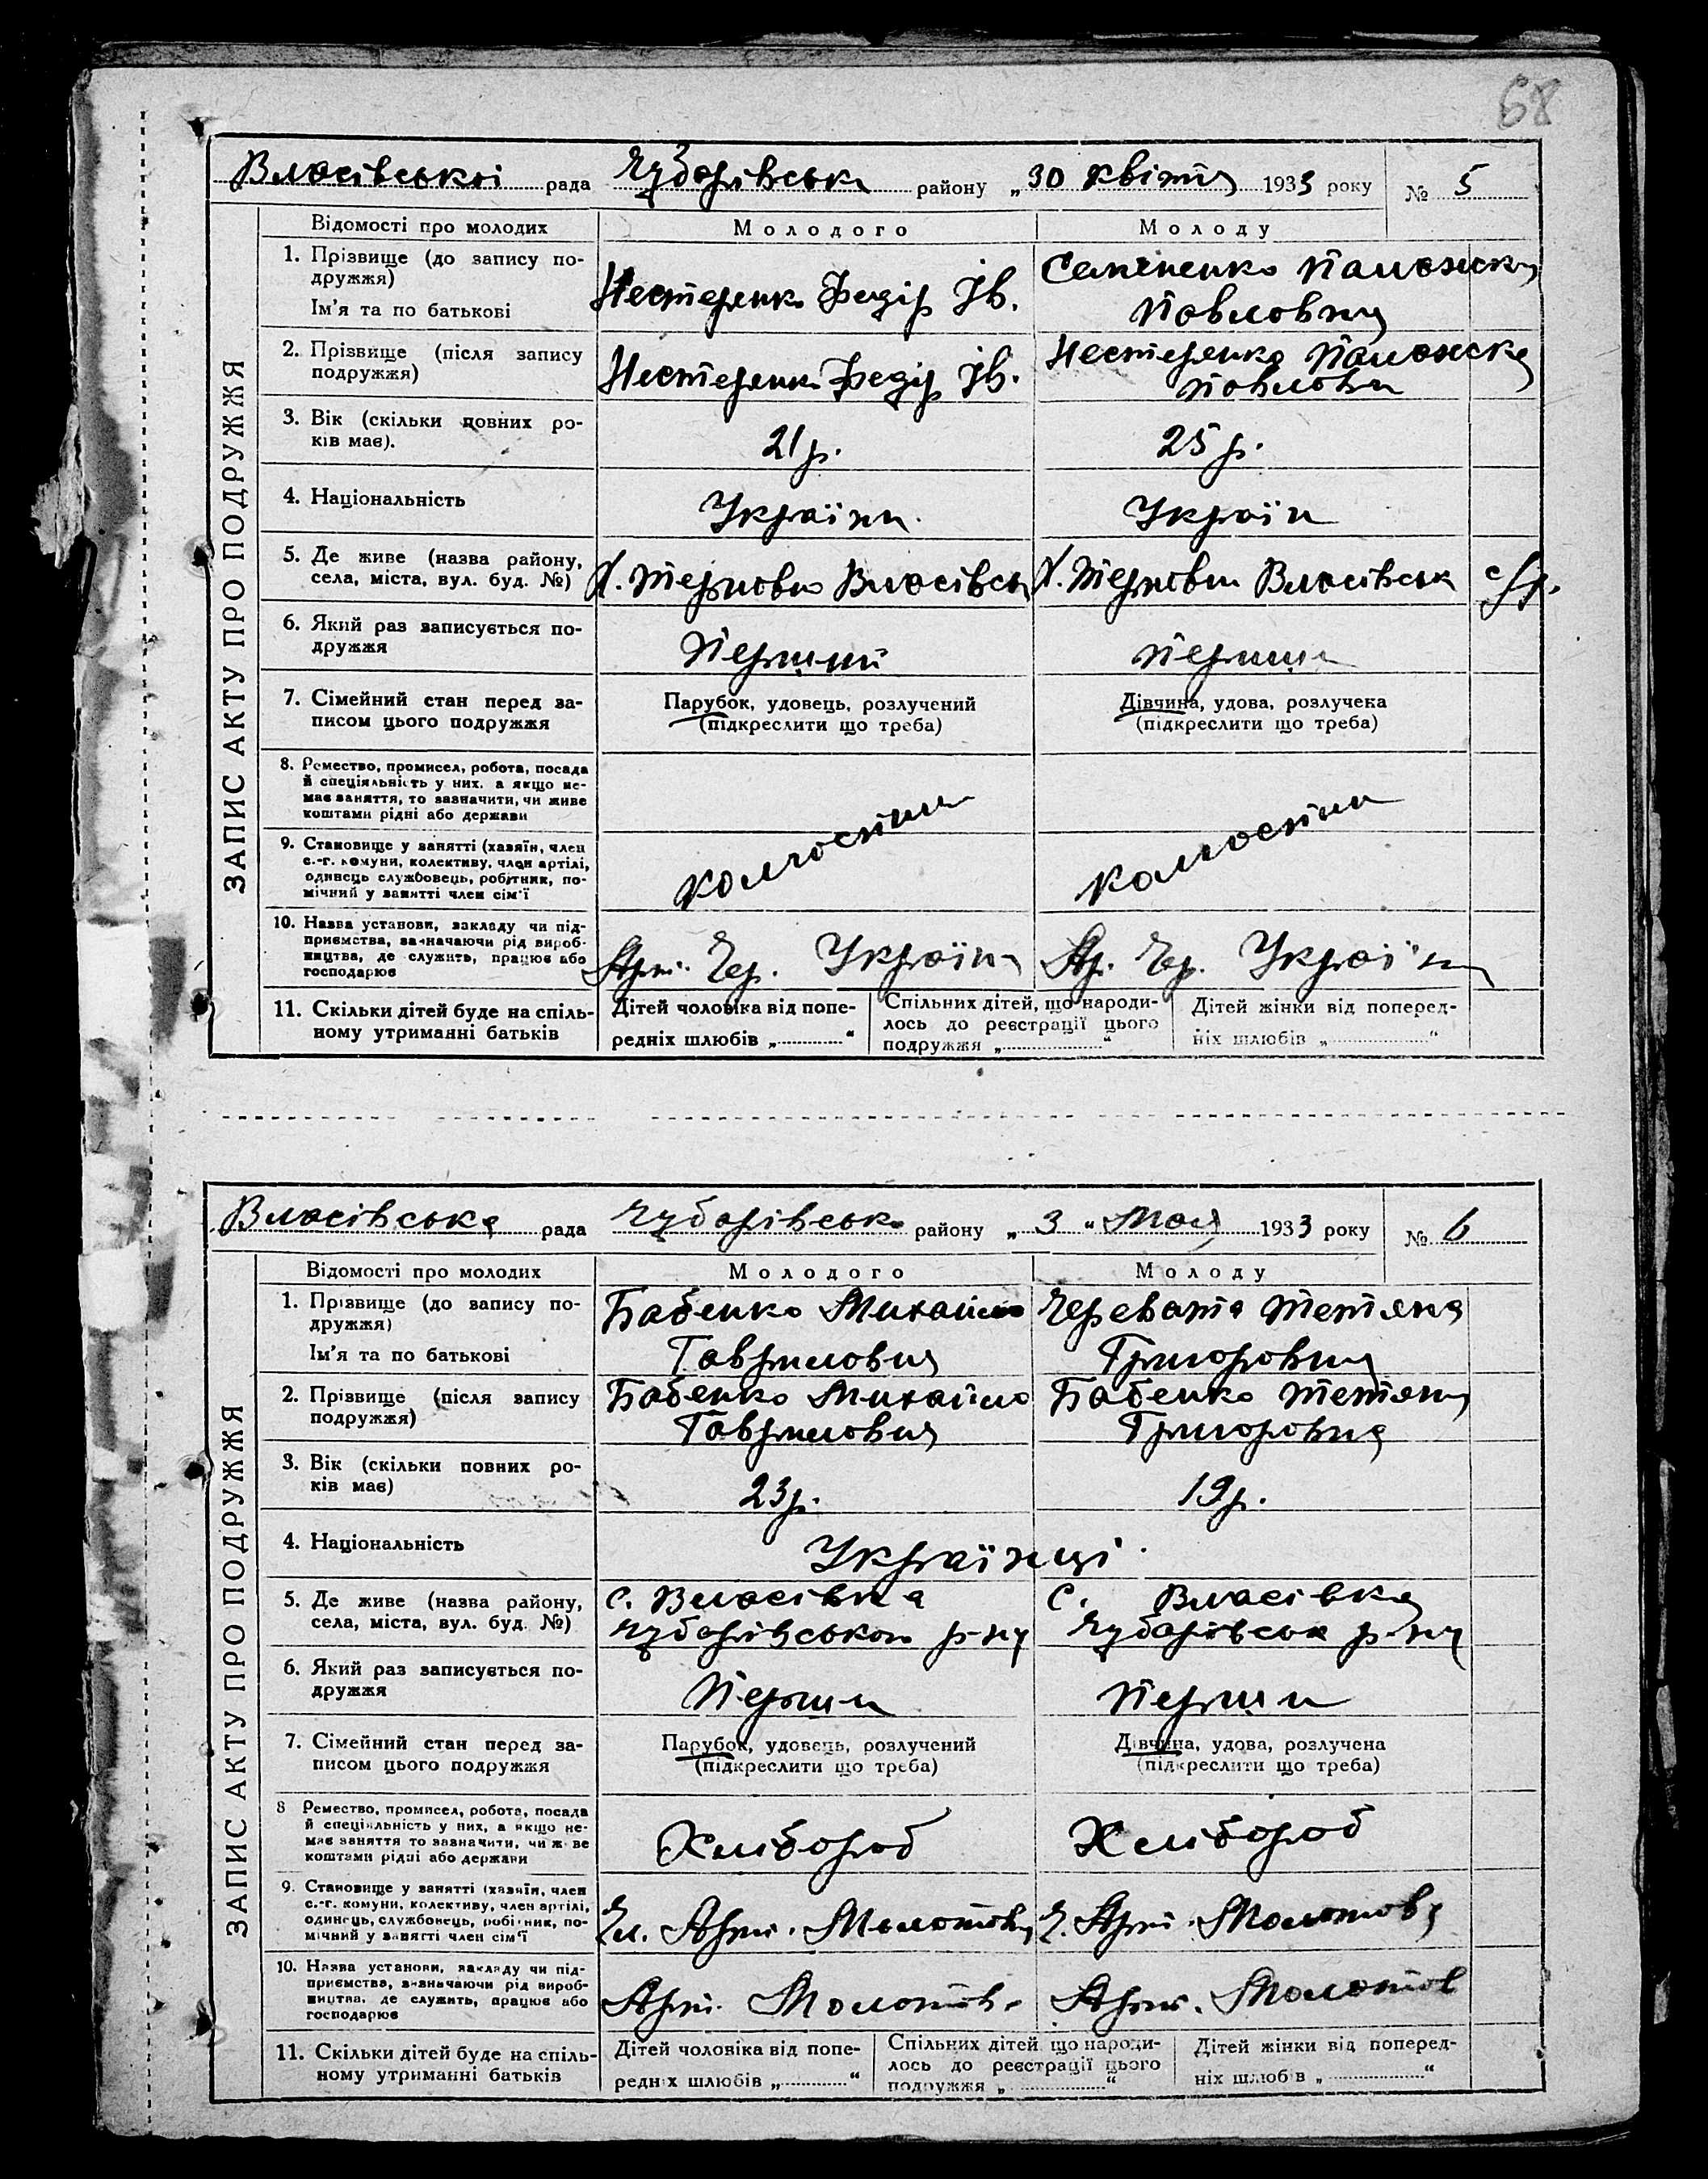 68
Власівської рада Чубарівська району „30 квітня 1933 року № 5
ЗАПИС АКТУ ПРО ПОДРУЖЖЯ
Відомості про молодих Молодого Молоду
1. Прізвище (до запису по-
дружжя)
Ім'я та по батькові
Нестеренко Федір Ів.
Семененко Палажка
Павловна
2. Прізвище (після запису
подружжя)
Нестеренко Федір Ів.
Нестеренко Палажка
Павловн
3. Вік (скільки повних ро-
ків має).
21 р. 25 р.
4. Національність
Україн Україн
5. Де живе (назва району,
села, міста, вул. буд. №)
Х. Терновка Власівськ Х. Терновка Власівськ с/р.
6. Який раз записується по-
дружжя
Перший перши
7. Сімейний стан перед за-
писом цього подружжя
Парубок, удовець, розлучений
(підкреслити що треба)
Дівчина, удова, розлучека
(підкреслити що треба)
8. Ремество, промисел, робота, посада
й спеціяльність у них, а якщо не-
має заняття, то зазначити, чи живе
коштами рідні або держави
9. Становище у занятті (хазяїн, член
с.-г. комуни, колективу, член артілі,
одинець службовець, робітник, по-
мічний у занятті член сім'ї
колгоспни колгоспни
10. Назва установи, закладу чи під-
приємства, зазначаючи рід вироб-
ництва, де служить, працює або
господарює
Арт. Чер. Україна Ар. Чер. Україн
11. Скільки дітей буде на спіль-
ному утриманні батьків
Дітей чоловіка від попе-
редніх шлюбів „ “
Спільних дітей, що народи-
лось до реєстрації цього
подружжя „ “
Дітей жінки від поперед-
ніх шлюбів „ “
Власівська рада Чубарівсько району „ 3 “ Мая 1933 року № 6
ЗАПИС АКТУ ПРО ПОДРУЖЖЯ
Відомості про молодих Молодого Молоду
1. Прізвище (до запису по-
дружжя)
Ім'я та по батькові
Бабенко Михайло
Гаврилович
Черевата Тетяна
Григоровна
2. Прізвище (після запису
подружжя)
Бабенко Михайло
Гаврилович
Бабенко Тетяна
Григоровна
3. Вік (скільки повних ро-
ків має)
23 р. 19 р.
4. Національність
Українці
5. Де живе (назва району,
села, міста, вул. буд. №)
с. Власівка
Чубарівського р-ну
с. Власівка
Чубарівськ р-ну
6. Який раз записується по-
дружжя
Перши перши
7. Сімейний стан перед за-
писом цього подружжя
Парубок, удовець, розлучений
(підкреслити що треба)
Дівчина, удова, розлучена
(підкреслити що треба)
8 Ремество, промисел, робота, посада
й спеціяльність у них, а якщо не-
має заняття то зазначити, чи живе
коштами рідні або держави
Хлібороб Хлібороб
9. Становище у занятті (хазяїн, член
с.-г. комуни, колективу, член артілі,
одинець, службовець, робітник, по-
мічний у занятті член сім'ї
Чл. Арт. Молотова Ч. Арт. Молотова
10. Назва установи, закладу чи під-
приємства, зазначаючи рід вироб-
ництва, де служить, працює або
господарює
Арт. Молотов Арт. Молотов
11. Скільки дітей буде на спіль-
ному утриманні батьків
Дітей чоловіка від попе-
редніх шлюбів „ “
Спільних дітей що народи-
лось до реєстрації цього
подружжя „ “
Дітей жінки від поперед-
ніх шлюбів „ “